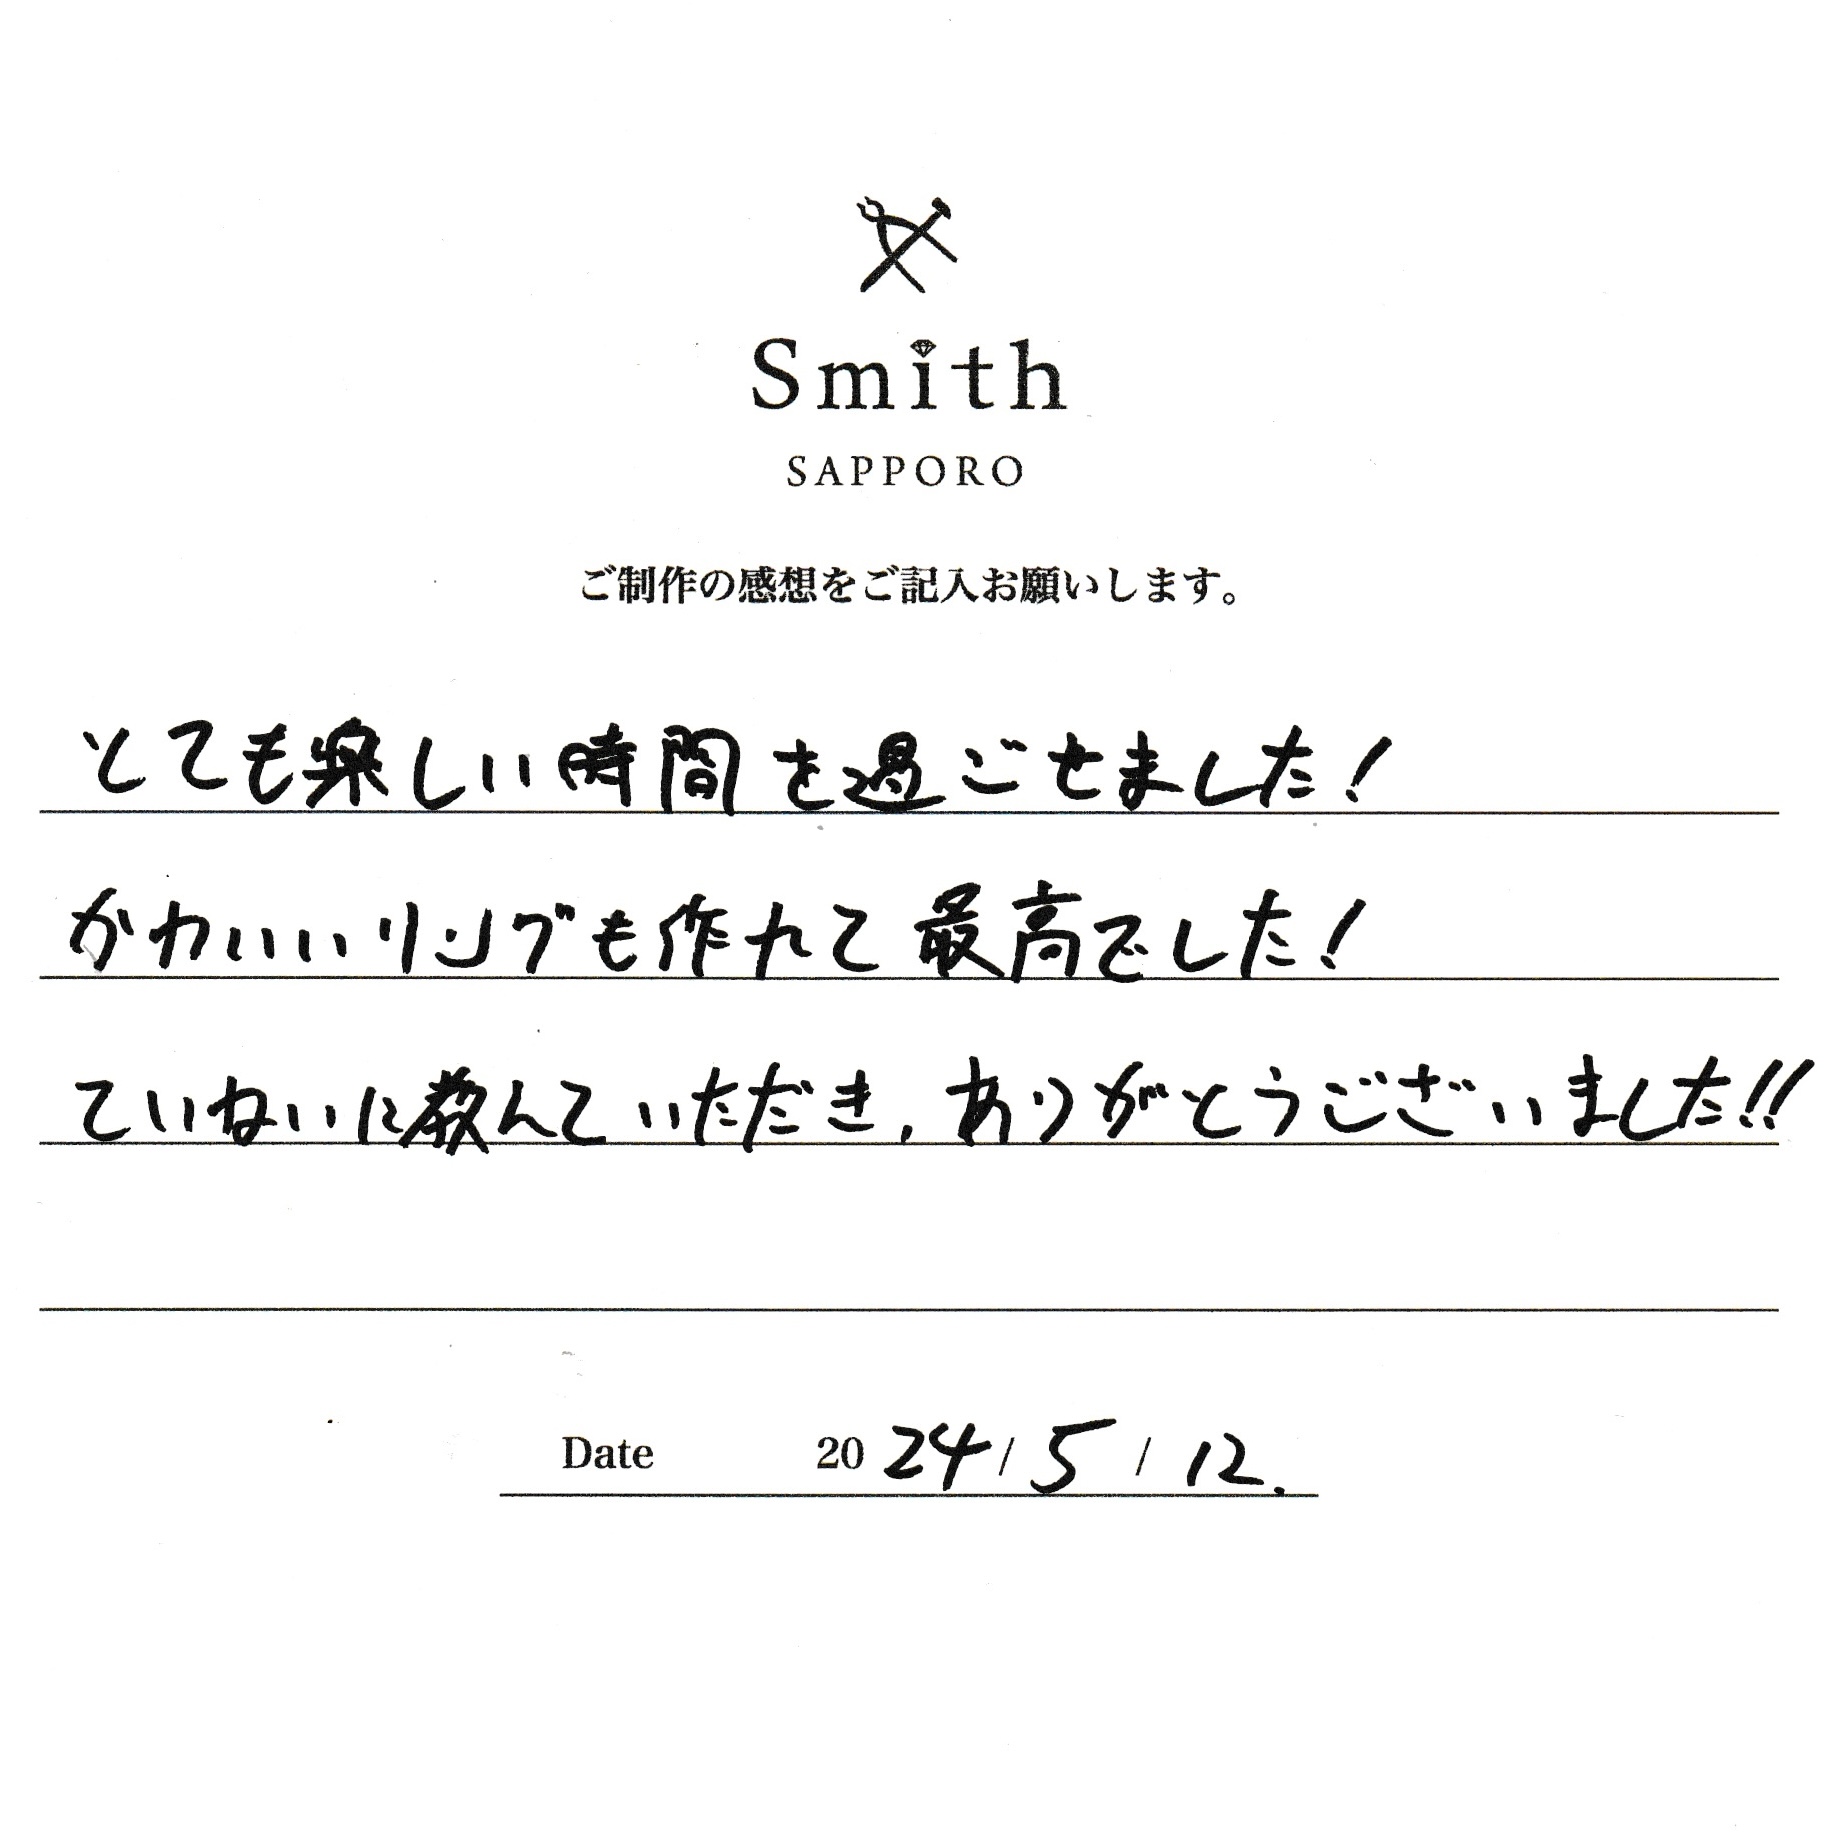 Smith
SAPPORO
ご制作の感想をご記入お願いします。
とても楽しい時間を過ごせました!
かわいいリングも作れて最高でした!
ていねいに教えていただき,ありがとうございました!!
Date 2024/5/12.